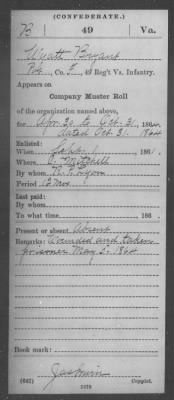 (CONFEDERATE.)
B 49 Va.
Wyatt Bryant
Pvt, Co. E, 49 Reg't Va. Infantry.
Appears on
Company Muster Roll
of the organization named above,
for Apr. 30 to Oct. 31, 1864.
dated Oct. 31, 1864
Enlisted:
When Sept. 1, 1861
Where
By whom
Period 12 mos
Last paid:
By whom
To what time 186
Present or absent Absent
Remarks: Wounded and taken
prisoner May 1864
Book mark:
(642) Copyist.